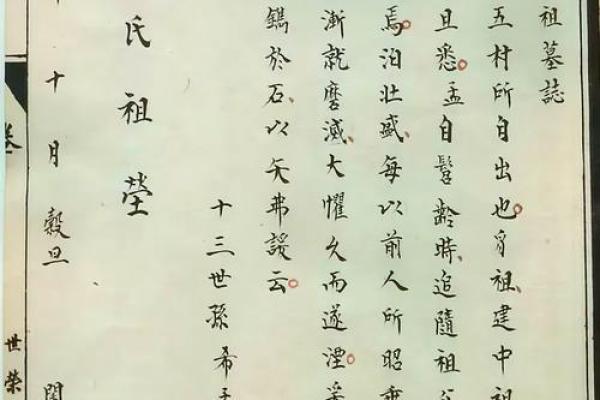 祖墓誌
五村所自出也自祖建中祖
旦悉孟自髫齡時追隨祖父
焉洎壯盛每以前人所昭垂
漸就磨滅大懼久而遂湮
鐫於石以矢弗諼云
十三世孫希孟
氏祖塋
十月穀旦
世榮